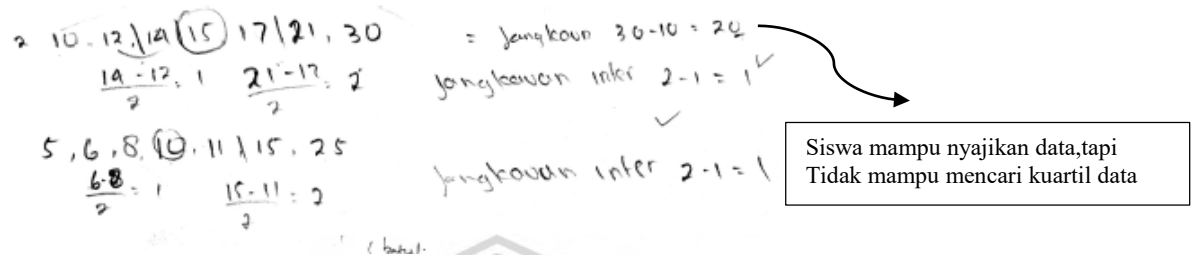 2 10 - 12, | 14 (15) 17 | 21, 30 = Jangkaun 30-10 = 20
14 - 12 / 2 = 1 21 - 17 / 2 = 2 Jangkauan inter 2-1 = 1 ✓
5, 6, 8, (10), 11 | 15, 25
6-8 / 2 = 1 15 - 11 / 2 = 2 Jangkauan inter 2-1 = 1
Siswa mampu nyajikan data,tapi
Tidak mampu mencari kuartil data